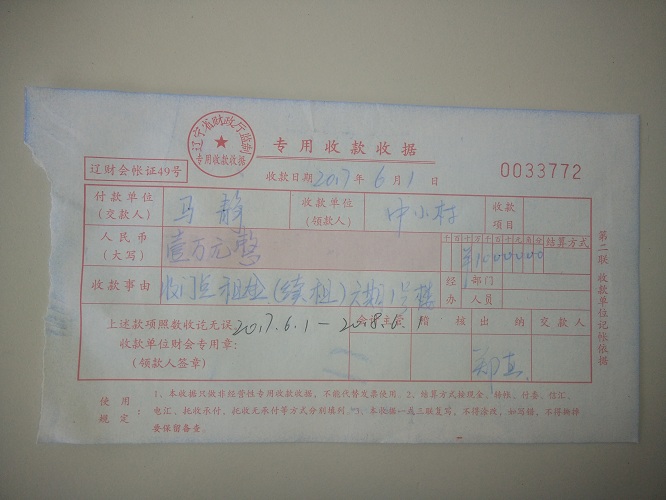 辽宁省财政厅监制
专用收款收据
专用收款收据
辽财会帐证49号
收款日期 2017年 6月 1日
0033772
付款单位(交款人) 马静 收款单位(领款人) 中小村 收款项目
人民币(大写) 壹万元整 千百十万千百十元角分 结算方式
¥1000000
收款事由 收门点租金(续租)六期1号楼 经办 部门 人员
上述款项照数收讫无误 2017.6.1—2018.6.1
收款单位财会专用章:
(领款人签章)
稽核 出纳 交款人
郑真
第二联 收款单位记帐依据
使用规定: 1、本收据只做非经营性专用收款收据,不能代替发票使用。2、结算方式按现金、转帐、付委、信汇、
电汇、托收承付、托收无承付等方式分别填列。3、本收据一式三联复写,不得涂改,如写错,不得撕掉
要保留备查。